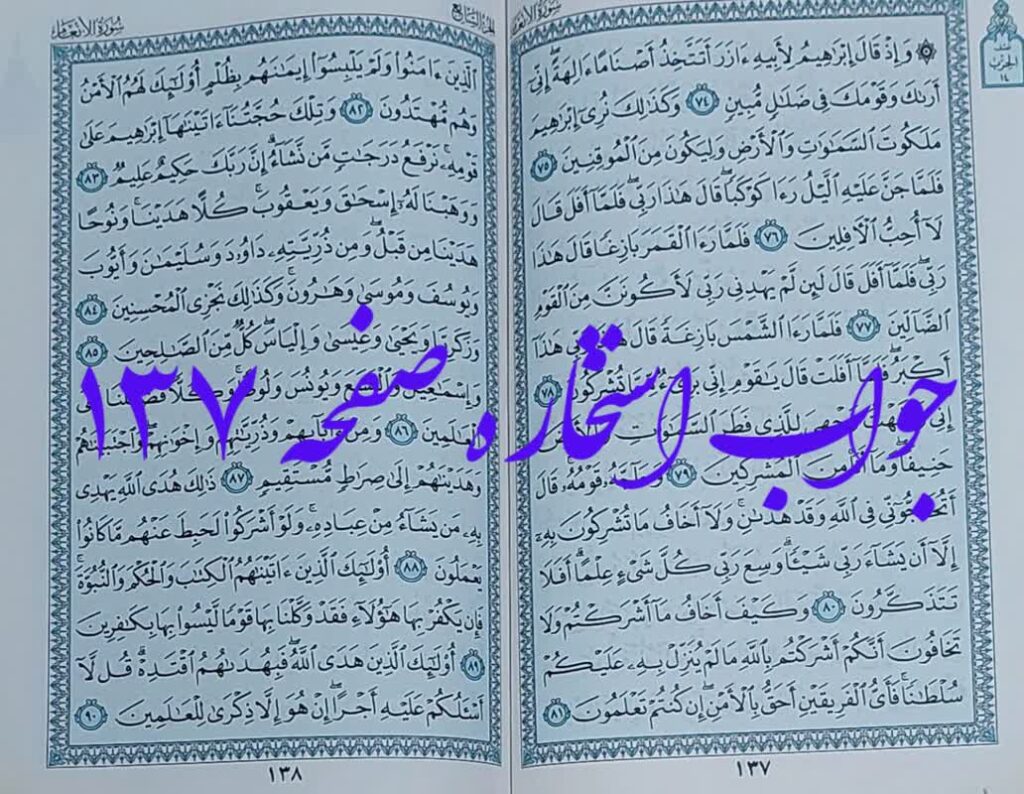 سُورَةُ الأَنْعَامِ
نصف
الحزب
١٤
۞ وَإِذْ قَالَ إِبْرَٰهِيمُ لِأَبِيهِ ءَازَرَ أَتَتَّخِذُ أَصْنَامًا ءَالِهَةً إِنِّىٓ
أَرَىٰكَ وَقَوْمَكَ فِى ضَلَٰلٍ مُّبِينٍ ٧٤ وَكَذَٰلِكَ نُرِىٓ إِبْرَٰهِيمَ
مَلَكُوتَ ٱلسَّمَٰوَٰتِ وَٱلْأَرْضِ وَلِيَكُونَ مِنَ ٱلْمُوقِنِينَ ٧٥
فَلَمَّا جَنَّ عَلَيْهِ ٱلَّيْلُ رَءَا كَوْكَبًا قَالَ هَٰذَا رَبِّى فَلَمَّآ أَفَلَ قَالَ
لَآ أُحِبُّ ٱلْءَافِلِينَ ٧٦ فَلَمَّا رَءَا ٱلْقَمَرَ بَازِغًا قَالَ هَٰذَا
رَبِّى فَلَمَّآ أَفَلَ قَالَ لَئِن لَّمْ يَهْدِنِى رَبِّى لَأَكُونَنَّ مِنَ ٱلْقَوْمِ
ٱلضَّآلِّينَ ٧٧ فَلَمَّا رَءَا ٱلشَّمْسَ بَازِغَةً قَالَ هَٰذَا رَبِّى هَٰذَآ
أَكْبَرُ فَلَمَّآ أَفَلَتْ قَالَ يَٰقَوْمِ إِنِّى بَرِىٓءٌ مِّمَّا تُشْرِكُونَ ٧٨
إِنِّى وَجَّهْتُ وَجْهِىَ لِلَّذِى فَطَرَ ٱلسَّمَٰوَٰتِ وَٱلْأَرْضَ
حَنِيفًا وَمَآ أَنَا۠ مِنَ ٱلْمُشْرِكِينَ ٧٩ وَحَآجَّهُۥ قَوْمُهُۥ قَالَ
أَتُحَٰٓجُّوٓنِّى فِى ٱللَّهِ وَقَدْ هَدَىٰنِ وَلَآ أَخَافُ مَا تُشْرِكُونَ بِهِۦٓ
إِلَّآ أَن يَشَآءَ رَبِّى شَيْـًٔا وَسِعَ رَبِّى كُلَّ شَىْءٍ عِلْمًا أَفَلَا
تَتَذَكَّرُونَ ٨٠ وَكَيْفَ أَخَافُ مَآ أَشْرَكْتُمْ وَلَا
تَخَافُونَ أَنَّكُمْ أَشْرَكْتُم بِٱللَّهِ مَا لَمْ يُنَزِّلْ بِهِۦ عَلَيْكُمْ
سُلْطَٰنًا فَأَىُّ ٱلْفَرِيقَيْنِ أَحَقُّ بِٱلْأَمْنِ إِن كُنتُمْ تَعْلَمُونَ ٨١
١٣٧
الجزء السابع
سُورَةُ الأَنْعَامِ
ٱلَّذِينَ ءَامَنُوا۟ وَلَمْ يَلْبِسُوٓا۟ إِيمَٰنَهُم بِظُلْمٍ أُو۟لَٰٓئِكَ لَهُمُ ٱلْأَمْنُ
وَهُم مُّهْتَدُونَ ٨٢ وَتِلْكَ حُجَّتُنَآ ءَاتَيْنَٰهَآ إِبْرَٰهِيمَ عَلَىٰ
قَوْمِهِۦ نَرْفَعُ دَرَجَٰتٍ مَّن نَّشَآءُ إِنَّ رَبَّكَ حَكِيمٌ عَلِيمٌ ٨٣
وَوَهَبْنَا لَهُۥٓ إِسْحَٰقَ وَيَعْقُوبَ كُلًّا هَدَيْنَا وَنُوحًا
هَدَيْنَا مِن قَبْلُ وَمِن ذُرِّيَّتِهِۦ دَاوُۥدَ وَسُلَيْمَٰنَ وَأَيُّوبَ
وَيُوسُفَ وَمُوسَىٰ وَهَٰرُونَ وَكَذَٰلِكَ نَجْزِى ٱلْمُحْسِنِينَ ٨٤
وَزَكَرِيَّا وَيَحْيَىٰ وَعِيسَىٰ وَإِلْيَاسَ كُلٌّ مِّنَ ٱلصَّٰلِحِينَ ٨٥
وَإِسْمَٰعِيلَ وَٱلْيَسَعَ وَيُونُسَ وَلُوطًا وَكُلًّا فَضَّلْنَا عَلَى
ٱلْعَٰلَمِينَ ٨٦ وَمِنْ ءَابَآئِهِمْ وَذُرِّيَّٰتِهِمْ وَإِخْوَٰنِهِمْ وَٱجْتَبَيْنَٰهُمْ
وَهَدَيْنَٰهُمْ إِلَىٰ صِرَٰطٍ مُّسْتَقِيمٍ ٨٧ ذَٰلِكَ هُدَى ٱللَّهِ يَهْدِى
بِهِۦ مَن يَشَآءُ مِنْ عِبَادِهِۦ وَلَوْ أَشْرَكُوا۟ لَحَبِطَ عَنْهُم مَّا كَانُوا۟
يَعْمَلُونَ ٨٨ أُو۟لَٰٓئِكَ ٱلَّذِينَ ءَاتَيْنَٰهُمُ ٱلْكِتَٰبَ وَٱلْحُكْمَ وَٱلنُّبُوَّةَ
فَإِن يَكْفُرْ بِهَا هَٰٓؤُلَآءِ فَقَدْ وَكَّلْنَا بِهَا قَوْمًا لَّيْسُوا۟ بِهَا بِكَٰفِرِينَ
٨٩ أُو۟لَٰٓئِكَ ٱلَّذِينَ هَدَى ٱللَّهُ فَبِهُدَىٰهُمُ ٱقْتَدِهْ قُل لَّآ
أَسْـَٔلُكُمْ عَلَيْهِ أَجْرًا إِنْ هُوَ إِلَّا ذِكْرَىٰ لِلْعَٰلَمِينَ ٩٠
١٣٨
جواب استخاره صفحه ١٣٧